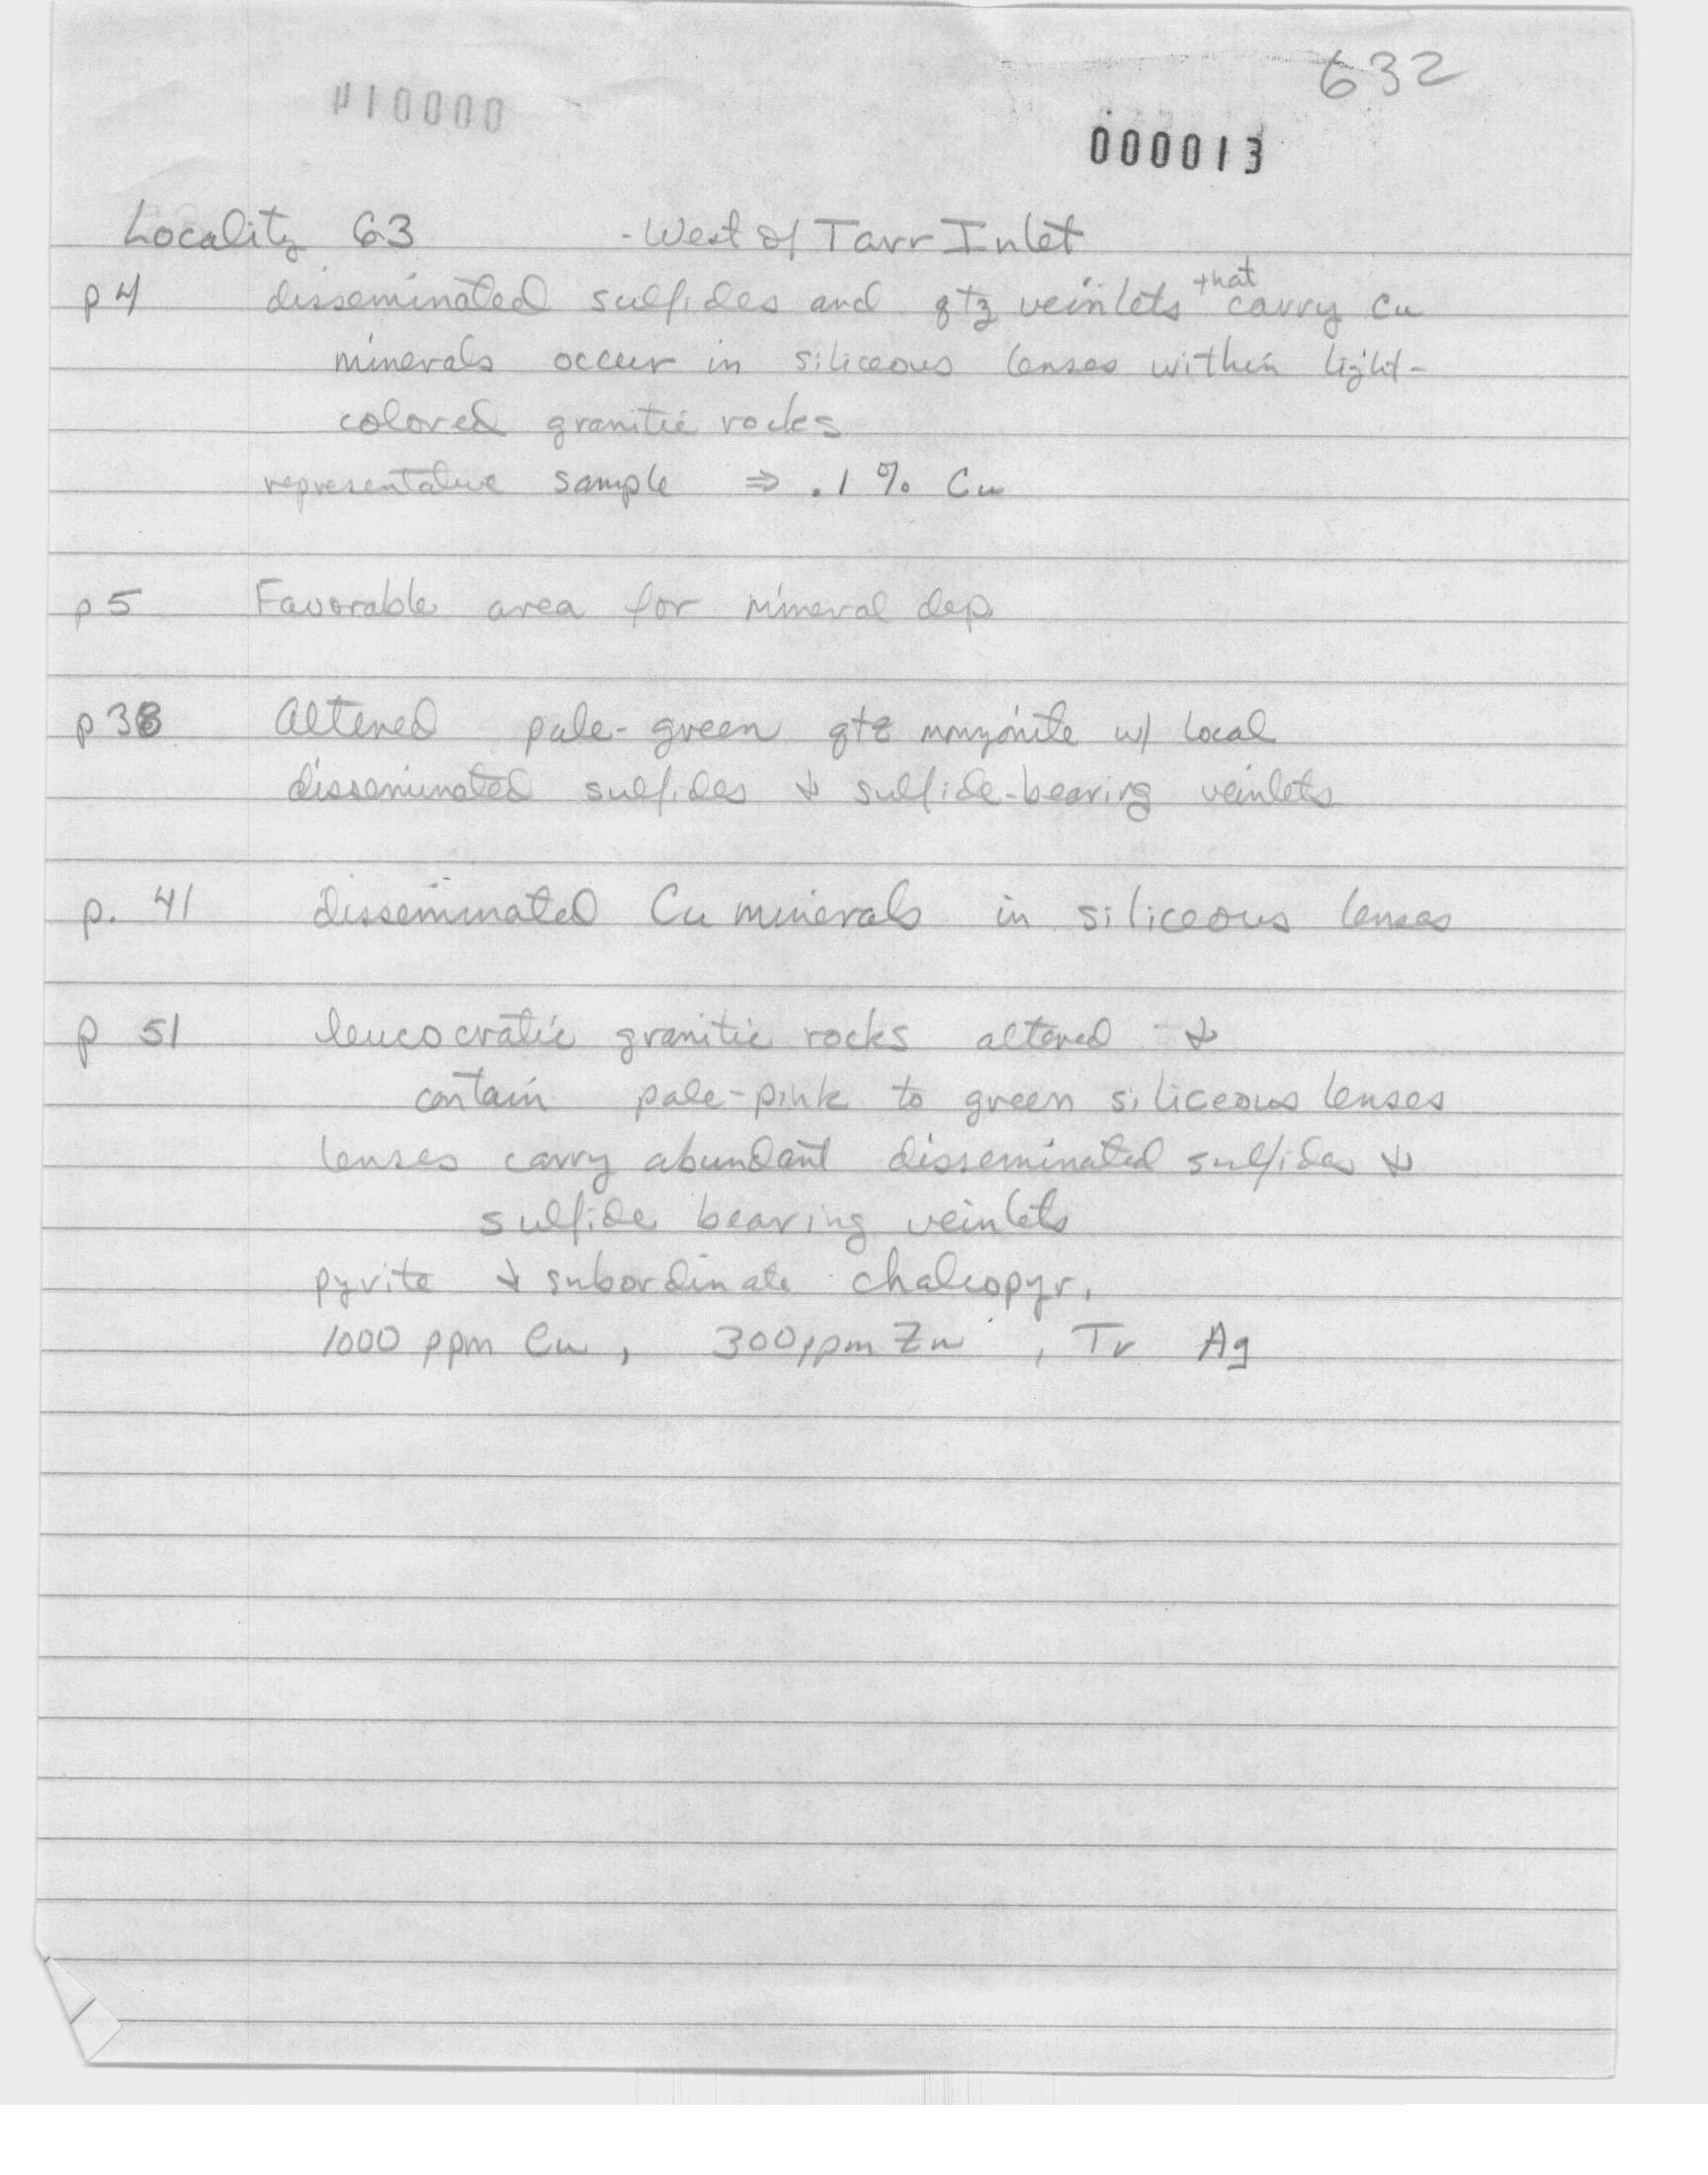 632
000013
Locality 63 - West of Tarr Inlet
p 4 disseminated sulfides and qtz veinlets that carry Cu
minerals occur in siliceous lenses within light-
colored granitic rocks
representative sample ⇒ .1 % Cu
p 5 Favorable area for mineral dep.
p 38 Altered pale-green qtz monzonite w/ local
disseminated sulfides & sulfide-bearing veinlets
p. 41 disseminated Cu minerals in siliceous lenses
p 51 leucocratic granitic rocks altered &
contain pale-pink to green siliceous lenses
lenses carry abundant disseminated sulfides &
sulfide bearing veinlets
pyrite & subordinate chalcopyr.
1000 ppm Cu, 300 ppm Zn, Tr Ag